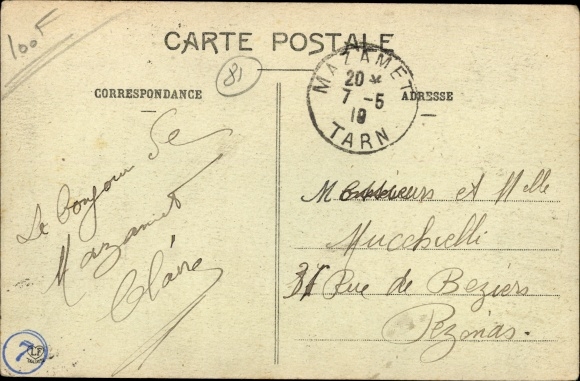 100F
CARTE POSTALE
81
CORRESPONDANCE
ADRESSE
MAZAMET
20 *
7 -5
19
TARN
Le bonjour de
Mazamet
Claire
Messieurs et Melle
Mucchielli
31 Rue de Beziers
Pezenas.
7
LF